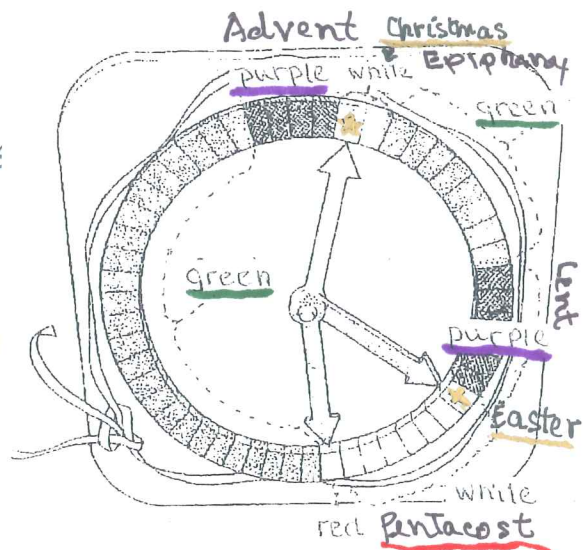 Advent Christmas
& Epiphany
purple white
green
green
Lent
purple
Easter
white
red Pentacost